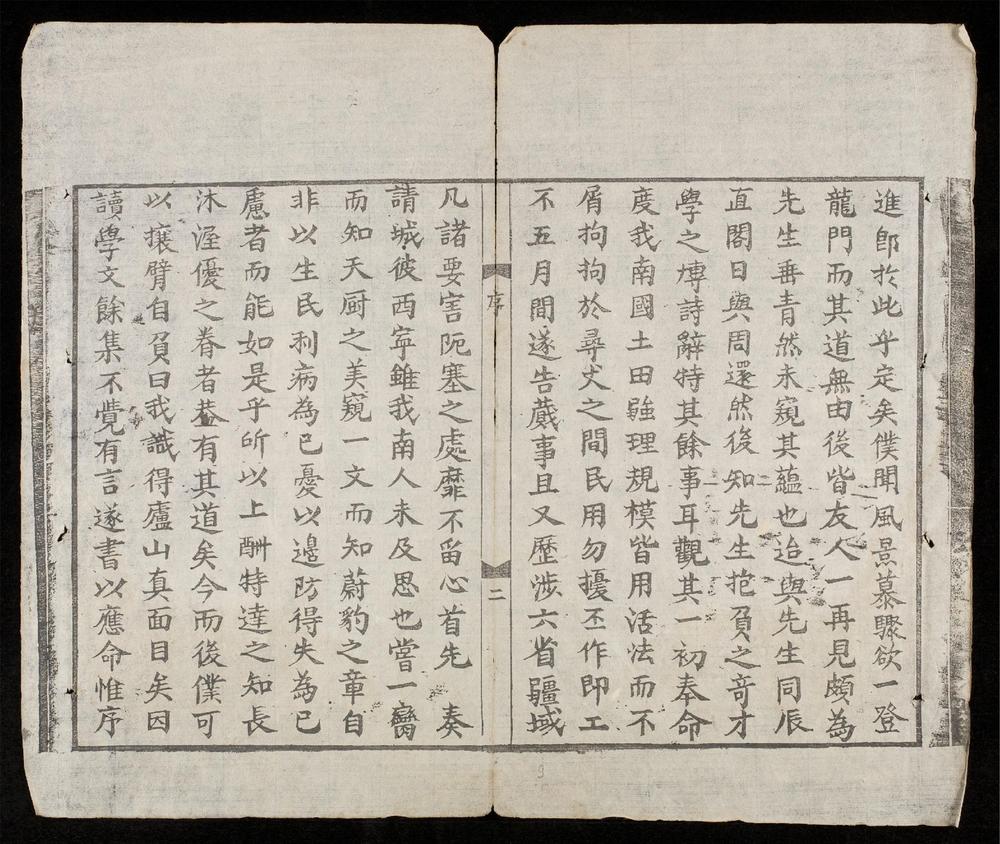 進郎扵此乎定矣僕聞風景慕驟欲一登
龍門而其道無由後皆友人一再見頗為
先生垂青然未窺其蘊也迨與先生同辰
直閣日與周還然後知先生抱負之竒才
學之慱詩辭特其餘事耳觀其一初奉命
度我南國土田疆理規模皆用活法而不
屑拘拘於尋丈之間民用勿擾丕作即工
不五月間遂告蕆事且又歷涉六省疆域
序
二
凡諸要害阨塞之處靡不留心首先 奏
請城彼西寧雖我南人未及思也嘗一臠
而知天厨之美窺一文而知蔚豹之章自
非以生民利病為已憂以邉防得失為已
慮者而能如是乎所以上酬特達之知長
沐渥優之眷者葢有其道矣今而後僕可
以攘臂自負曰我識得廬山真面目矣因
讀學文餘集不覺有言遂書以應命惟序
9